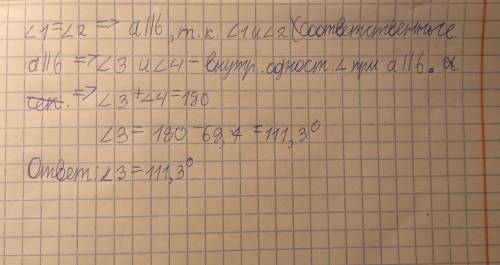 ∠1=∠2 => a||б, т.к. ∠1 и ∠2 (соответственные
a||б => ∠3 и ∠4 – внутр. одност. ∠ при a||б. и
сек. => ∠3+∠4=180
∠3= 180-68,7=111,3°
Ответ: ∠3=111,3°